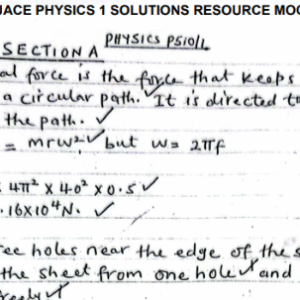 JACE PHYSICS 1 SOLUTIONS RESOURCE MOC
PHYSICS P510/1
SECTION A
al force is the force that keeps
a circular path. ✓ It is directed to
the path. ✓
= mrω² ✓ but ω = 2πf
4π² × 40² × 0.5 ✓
.16×10⁴ N. ✓
ree holes near the edge of the s
the sheet from one hole ✓ and
freely ✓